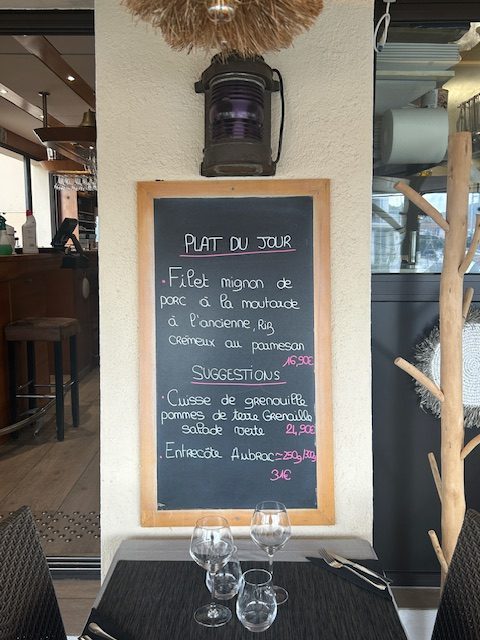 PLAT DU JOUR
. Filet mignon de
porc à la moutarde
à l'ancienne, Riz
crémeux au parmesan
16,90€
SUGGESTIONS
. Cuisse de grenouille
pommes de terre Grenaille
salade verte 21,90€
. Entrecôte Aubrac ≃250g/300g
31€